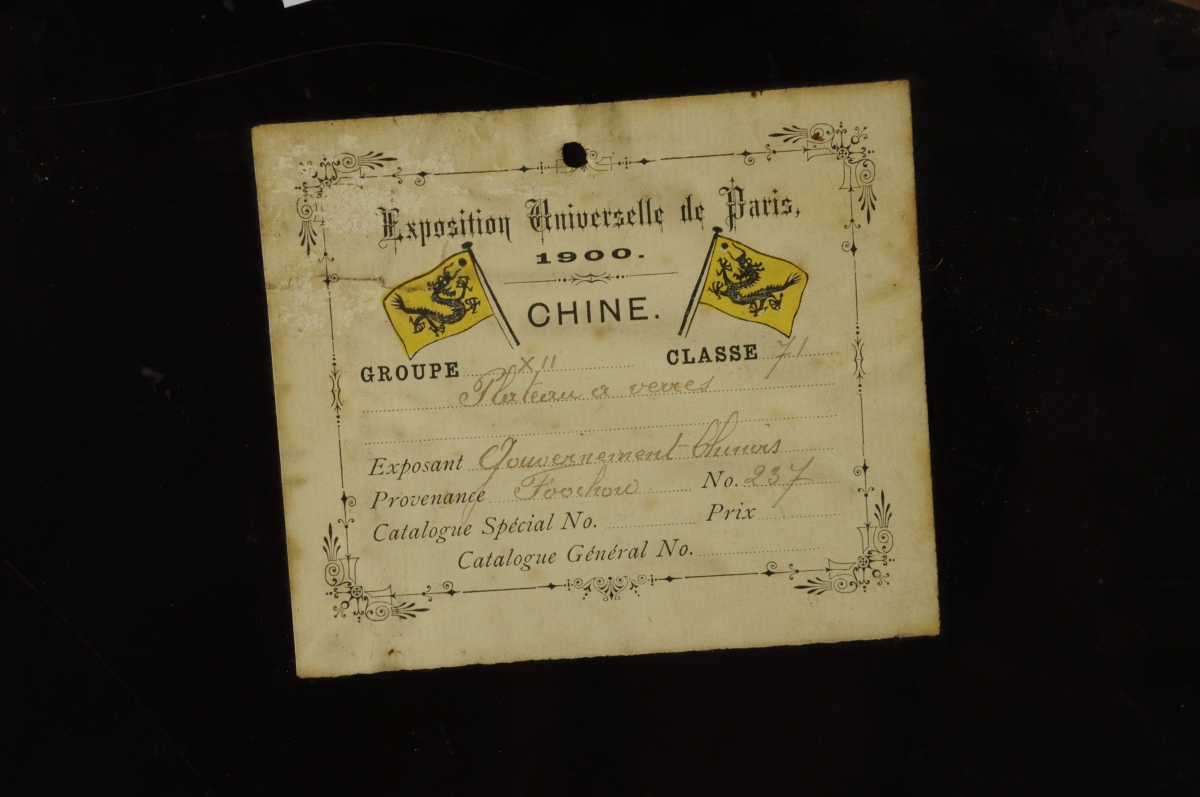 Exposition Universelle de Paris,
1900.
CHINE.
GROUPE XII CLASSE 71
Plateau a verres
Exposant Gouvernement Chinois
Provenance Foochow No. 237
Catalogue Spécial No. Prix
Catalogue Général No.